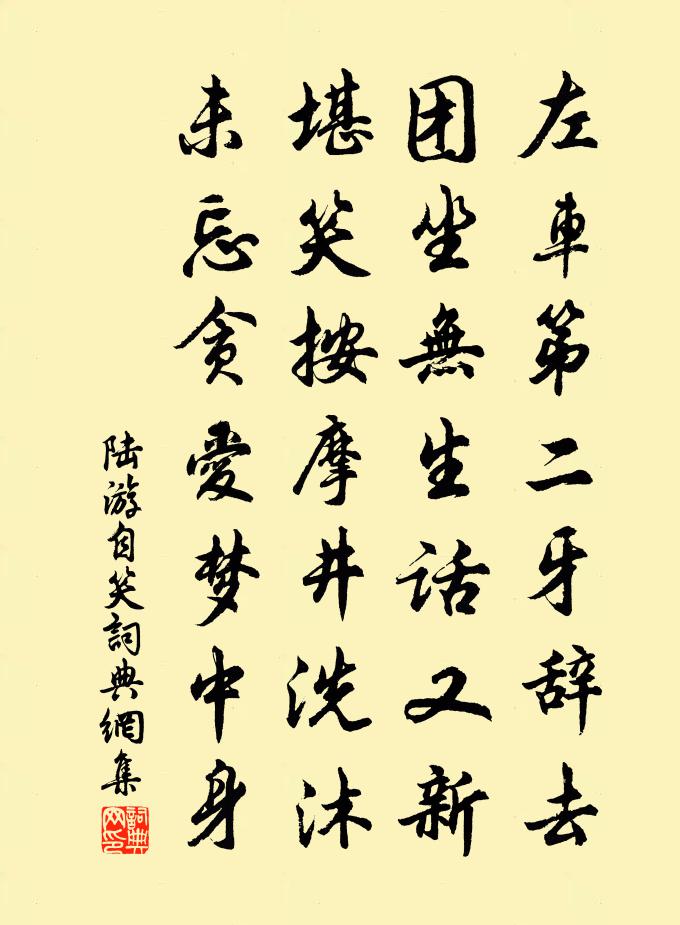 左車第二牙辞去
团坐無生话又新
堪笑按摩并洗沐
未忘贪愛梦中身
陆游自笑詞典網集
詞典网印